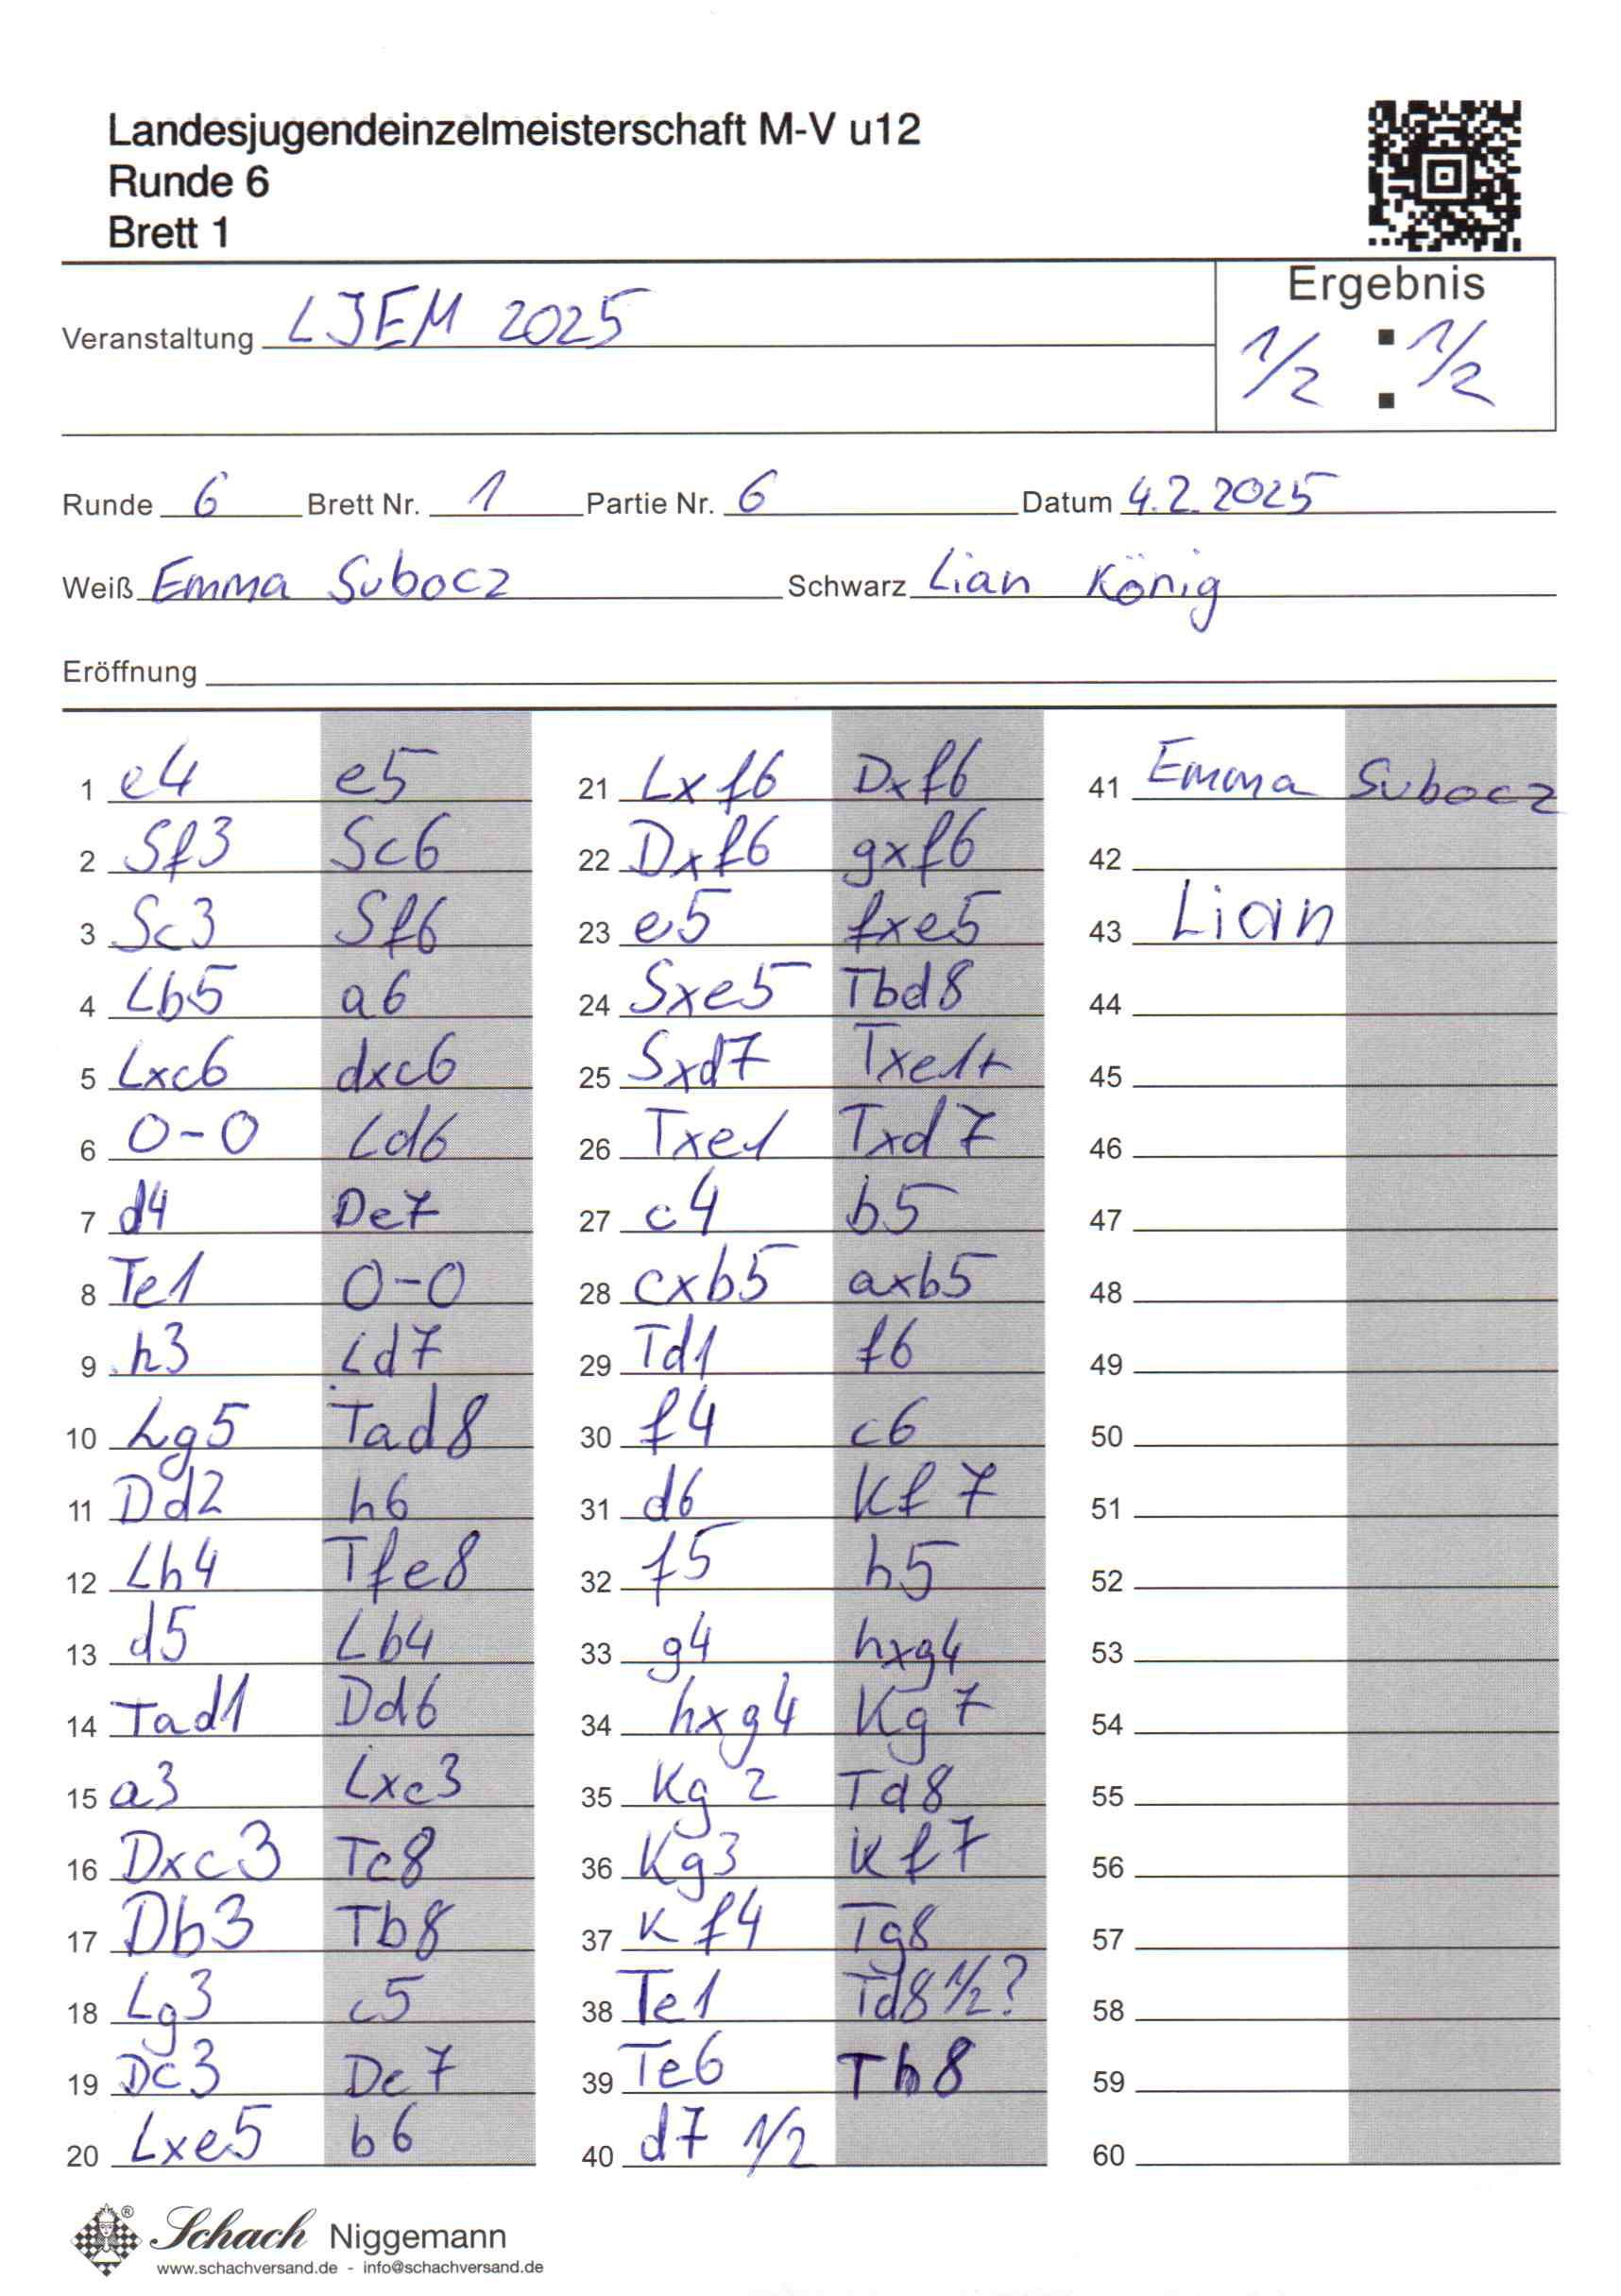 Landesjugendeinzelmeisterschaft M-V u12
Runde 6
Brett 1
Ergebnis
Veranstaltung LJEM 2025
1/2 : 1/2
Runde 6 Brett Nr. 1 Partie Nr. 6 Datum 4.2.2025
Weiß Emma Subocz Schwarz Lian König
Eröffnung
1 e4 e5
2 Sf3 Sc6
3 Sc3 Sf6
4 Lb5 a6
5 Lxc6 dxc6
6 0-0 Ld6
7 d4 De7
8 Te1 0-0
9 h3 Ld7
10 Lg5 Tad8
11 Dd2 h6
12 Lh4 Tfe8
13 d5 Lb4
14 Tad1 Dd6
15 a3 Lxc3
16 Dxc3 Tc8
17 Db3 Tb8
18 Lg3 c5
19 Dc3 De7
20 Lxe5 b6
21 Lxf6 Dxf6
22 Dxf6 gxf6
23 e5 fxe5
24 Sxe5 Tbd8
25 Sxd7 Txe1+
26 Txe1 Txd7
27 c4 b5
28 cxb5 axb5
29 Td1 f6
30 f4 c6
31 d6 Kf7
32 f5 h5
33 g4 hxg4
34 hxg4 Kg7
35 Kg2 Td8
36 Kg3 Kf7
37 Kf4 Tg8
38 Te1 Td8 1/2?
39 Te6 Th8
40 d7 1/2
41 Emma Subocz
42
43 Lian
44
45
46
47
48
49
50
51
52
53
54
55
56
57
58
59
60
Schach Niggemann
www.schachversand.de - info@schachversand.de